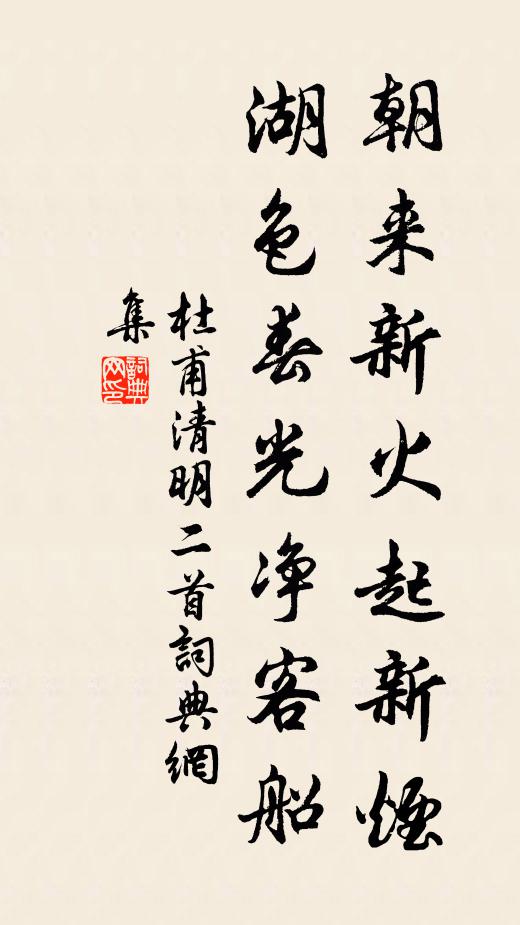 朝来新火起新煙
湖色春光净客船
杜甫清明二首詞典網
集
詞典网印